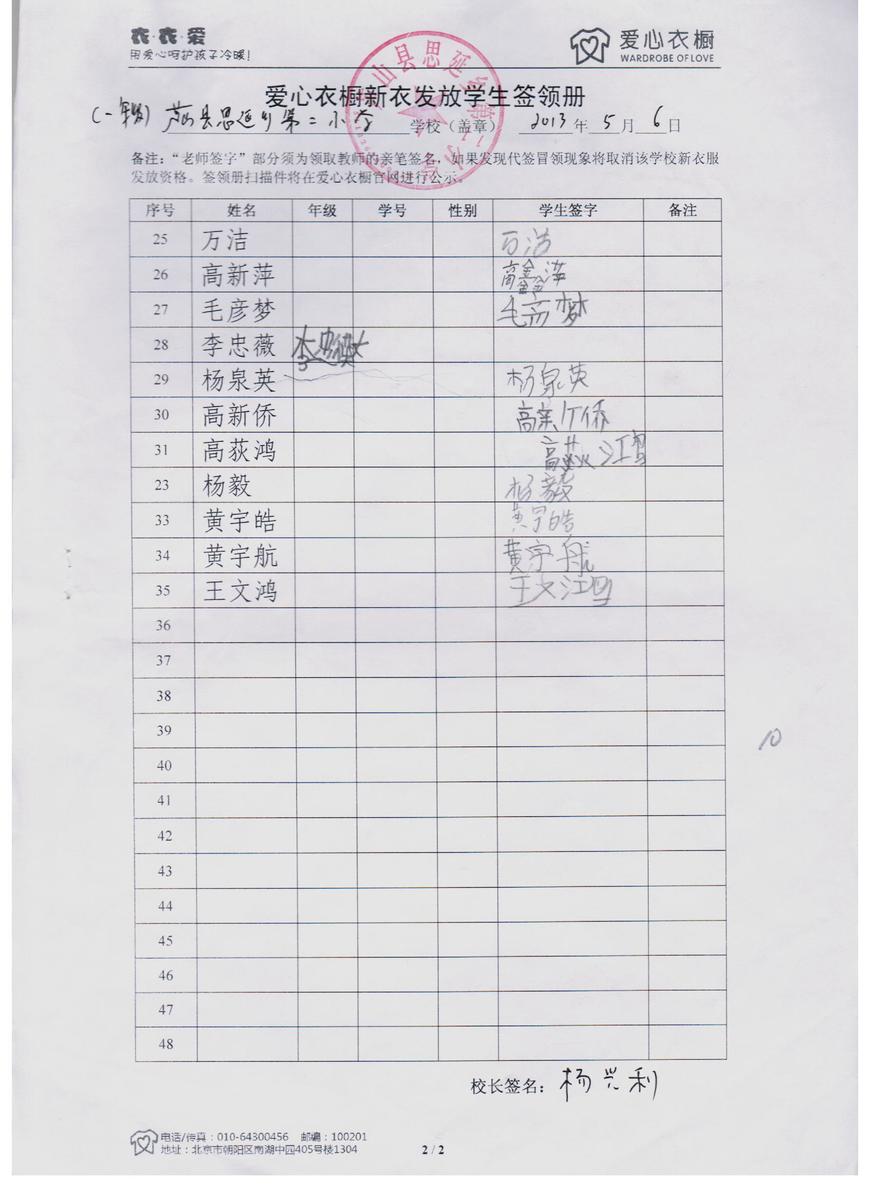 衣·衣·爱
用爱心呵护孩子冷暖!
爱心衣橱
WARDROBE OF LOVE
爱心衣橱新衣发放学生签领册
(一年级) 芦山县思延乡第二小学 学校（盖章） 2013 年 5 月 6 日
备注：“老师签字”部分须为领取教师的亲笔签名，如果发现代签冒领现象将取消该学校新衣服
发放资格。签领册扫描件将在爱心衣橱官网进行公示。
序号 姓名 年级 学号 性别 学生签字 备注
25 万洁 万洁
26 高新萍 高鑫萍
27 毛彦梦 毛彦梦
28 李忠薇 李忠薇
29 杨泉英 杨泉英
30 高新侨 高新侨
31 高荻鸿 高荻鸿
23 杨毅 杨毅
33 黄宇皓 黄宇皓
34 黄宇航 黄宇航
35 王文鸿 王文鸿
36
37
38
39
40
41
42
43
44
45
46
47
48
10
校长签名：杨兴利
电话/传真：010-64300456 邮编：100201
地址：北京市朝阳区南湖中园405号楼1304
2 / 2